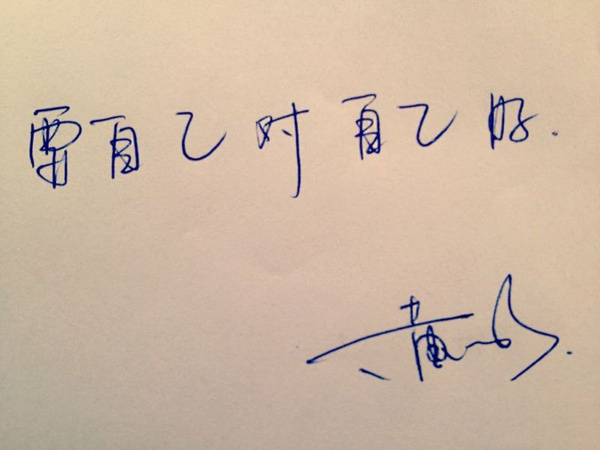 要自己对自己好.
黄